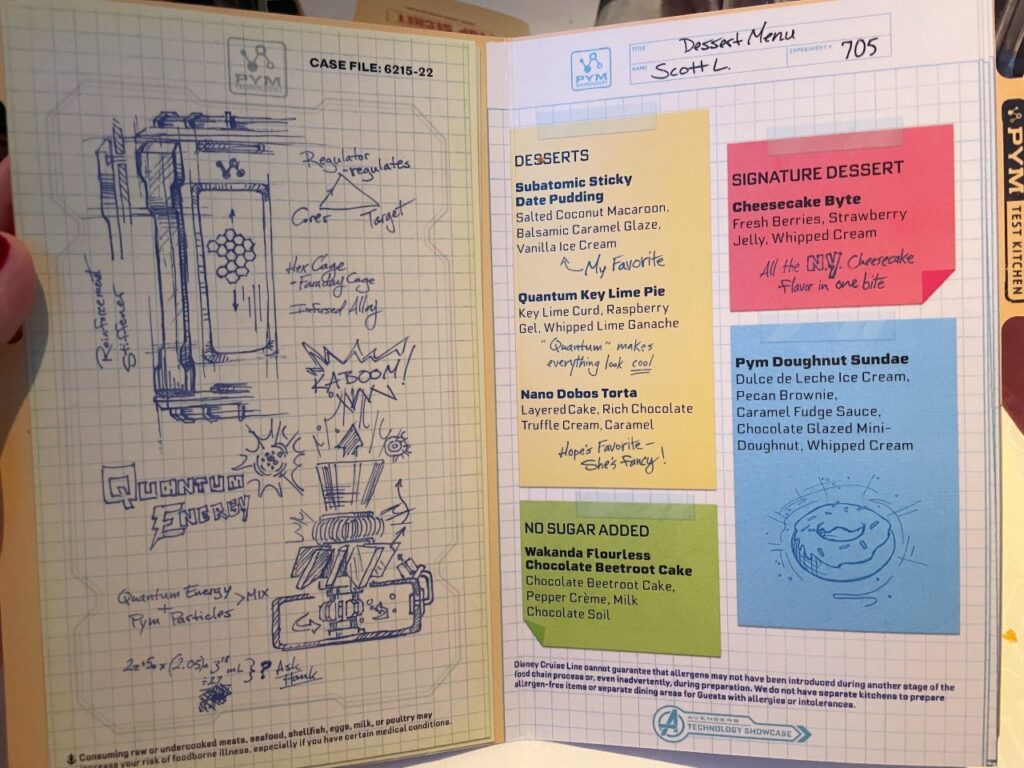 PYM
TECHNOLOGIES
CASE FILE: 6215-22
Regulator
-regulates
Cores
Target
Hex Cage
- Faraday Cage
Infused Alloy
Reinforcement
Stiffener
KABOOM!
QUANTUM
ENERGY
Quantum Energy
+
Pym Particles
> MIX
? Ask
Hank
Consuming raw or undercooked meats, seafood, shellfish, eggs, milk, or poultry may
increase your risk of foodborne illness, especially if you have certain medical conditions.
PYM
TECHNOLOGIES
TITLE Dessert Menu
NAME Scott L.
EXPERIMENT # 705
DESSERTS
Subatomic Sticky
Date Pudding
Salted Coconut Macaroon,
Balsamic Caramel Glaze,
Vanilla Ice Cream
My Favorite
Quantum Key Lime Pie
Key Lime Curd, Raspberry
Gel, Whipped Lime Ganache
"Quantum" makes
everything look cool
Nano Dobos Torta
Layered Cake, Rich Chocolate
Truffle Cream, Caramel
Hope's Favorite -
She's fancy!
NO SUGAR ADDED
Wakanda Flourless
Chocolate Beetroot Cake
Chocolate Beetroot Cake,
Pepper Crème, Milk
Chocolate Soil
SIGNATURE DESSERT
Cheesecake Byte
Fresh Berries, Strawberry
Jelly, Whipped Cream
All the N.Y. Cheesecake
flavor in one bite
Pym Doughnut Sundae
Dulce de Leche Ice Cream,
Pecan Brownie,
Caramel Fudge Sauce,
Chocolate Glazed Mini-
Doughnut, Whipped Cream
Disney Cruise Line cannot guarantee that allergens may not have been introduced during another stage of the
food chain process or, even inadvertently, during preparation. We do not have separate kitchens to prepare
allergen-free items or separate dining areas for Guests with allergies or intolerances.
AVENGERS
TECHNOLOGY SHOWCASE
PYM
TEST KITCHEN